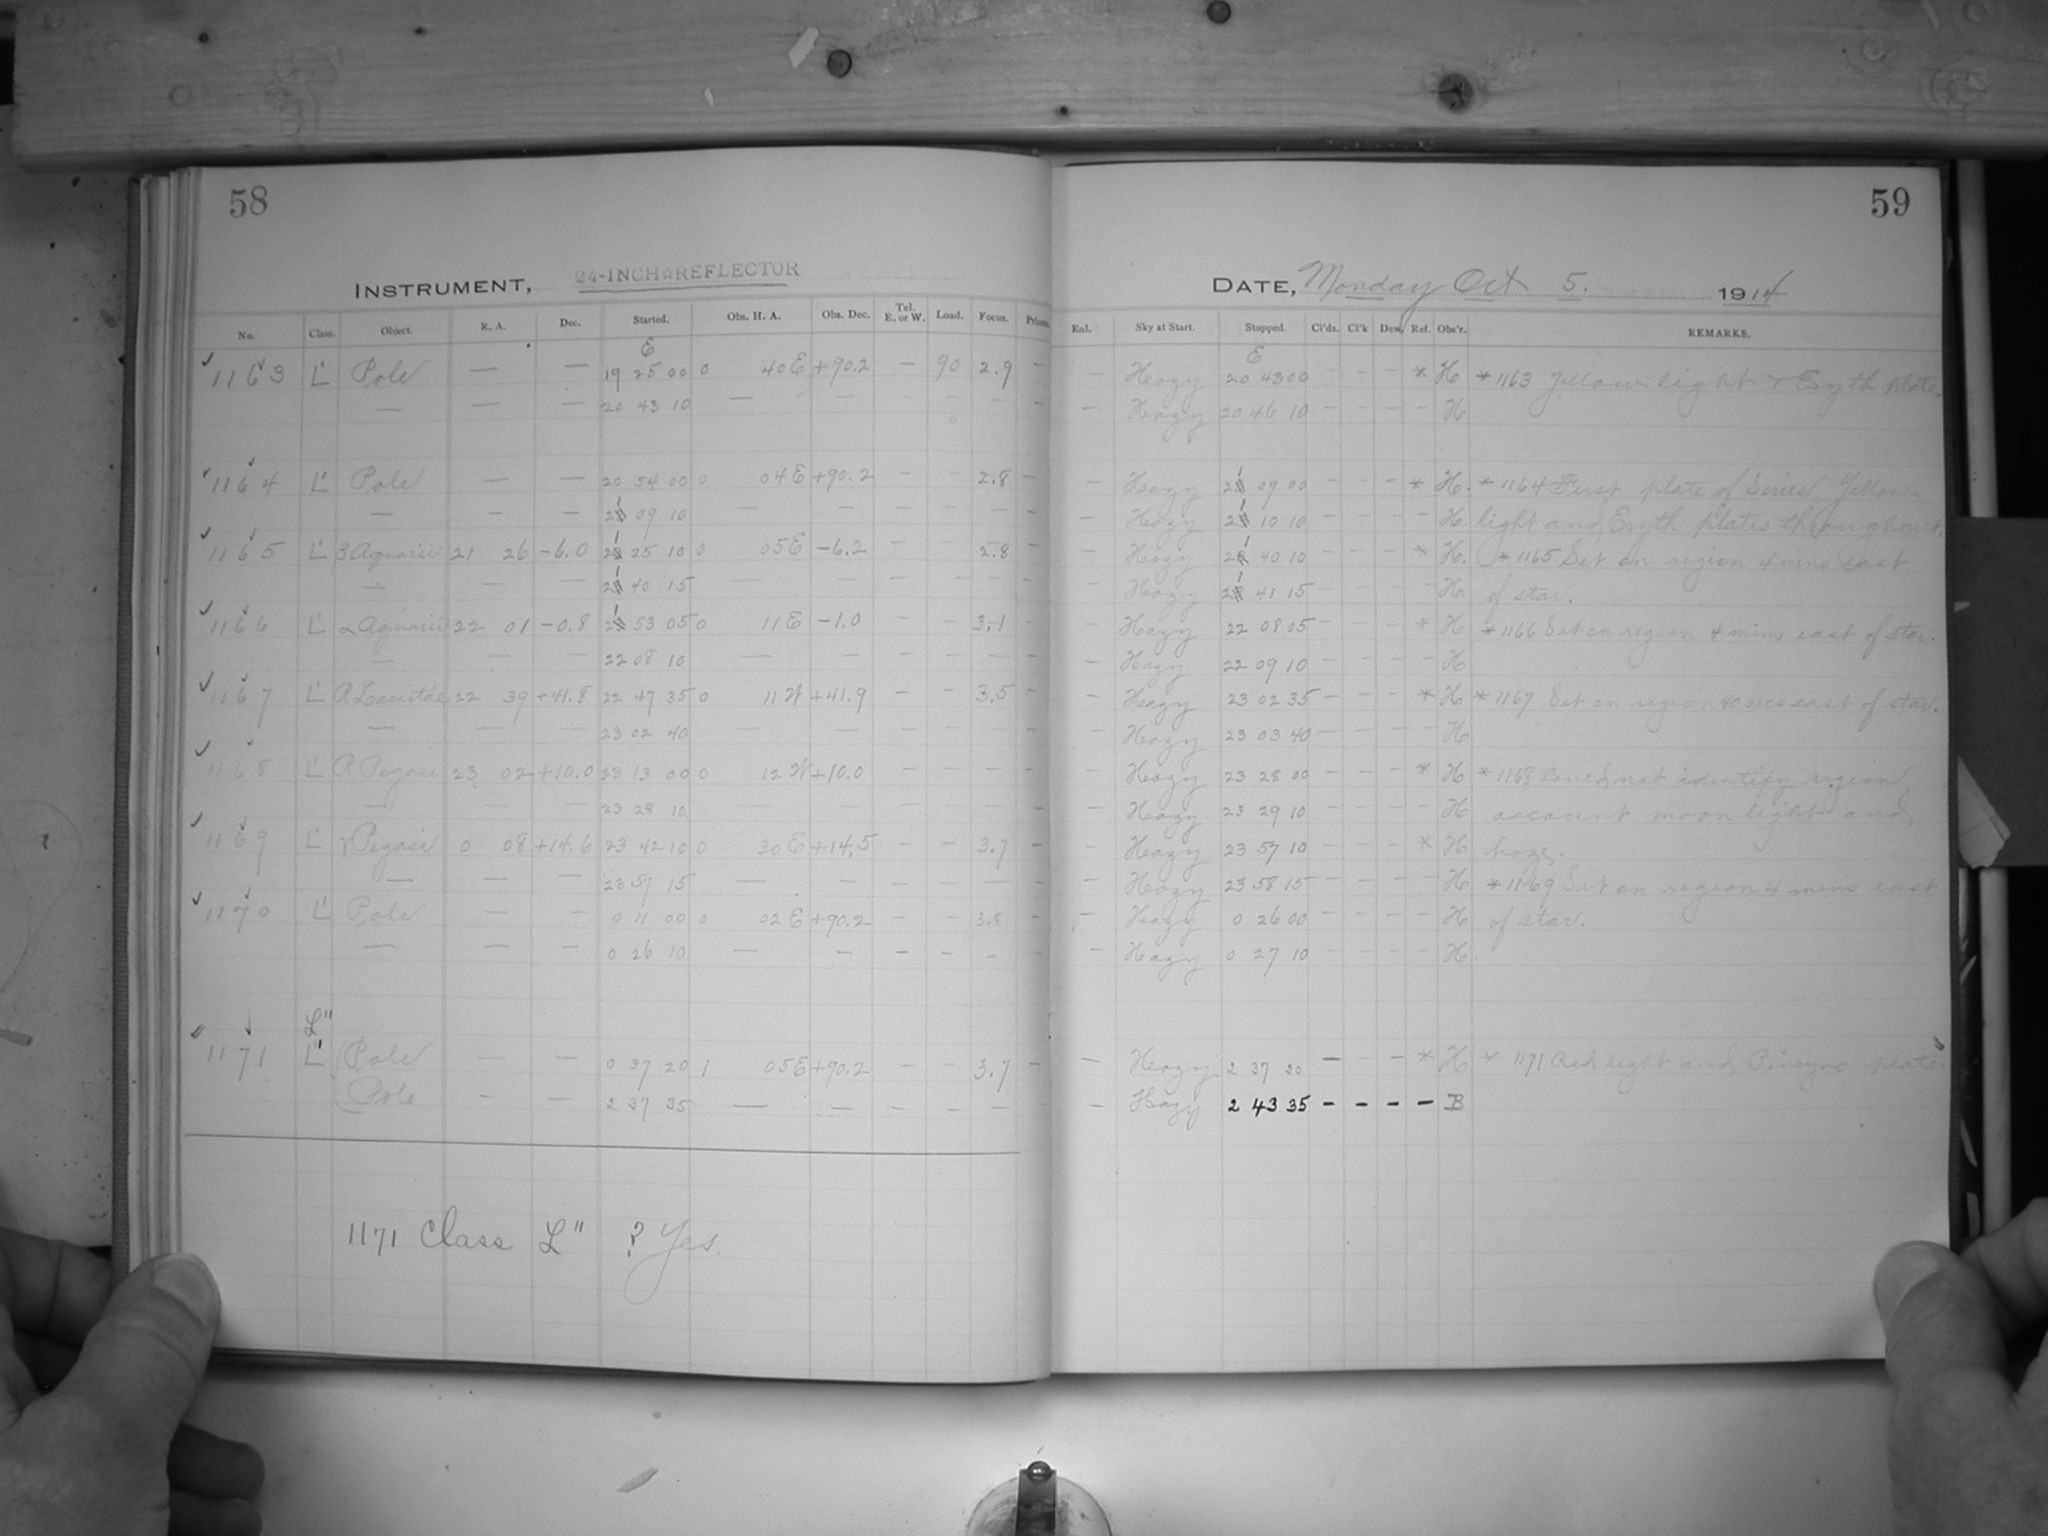 58
INSTRUMENT, 24-INCH☆REFLECTOR
No. Class. Object. R. A. Dec. Started. Obs. H. A. Obs. Dec. Tel. E. or W. Load. Focus.
E
1163 L' Pole — — 19 25 00 0 40 E +90.2 — 90 2.9 —
— — — 20 43 10 — — — — — —
1164 L' Pole — — 20 54 00 0 04 E +90.2 — — 2.8 —
— — — 21 09 10 — — — — — —
1165 L' β Aquarii 21 26 -6.0 21 25 10 0 05 E -6.2 — — 2.8 —
— — — 21 40 15 — — — — — —
1166 L' α Aquarii 22 01 -0.8 21 53 05 0 11 E -1.0 — — 3.1 —
— — — 22 08 10 — — — — — —
1167 L' 22 39 +41.8 22 47 35 0 11 W +41.9 — — 3.5 —
— — — 23 02 40 — — — — — —
1168 L' Pegasi 23 02 +10.0 23 13 00 0 12 W +10.0 — — — —
— — — 23 28 10 — — — — — —
1169 L' γ Pegasi 0 08 +14.6 23 42 10 0 30 E +14.5 — — 3.7 —
— — — 23 57 15 — — — — — —
1170 L' Pole — — 0 11 00 0 02 E +90.2 — — 3.8 —
— — — 0 26 10 — — — — — —
L"
1171 L" Pole — — 0 37 20 1 05 E +90.2 — — 3.7 —
Pole — — 2 37 35 — — — — — —
1171 Class L" ? Yes.
59
DATE, Monday Oct 5. 1914
Enl. Sky at Start. Stopped. Cl'ds. Cl'k Dew. Ref. Obs'r. REMARKS.
E
— Hazy 20 43 00 — — — * H *1163 Yellow light + Eryth plate.
— Hazy 20 46 10 — — — — H
— Hazy 21 09 00 — — — * H. *1164 First plate of Series Yellow
— Hazy 21 10 10 — — — — H light and Eryth plates throughout.
— Hazy 21 40 10 — — — * H. *1165 Set on region 4 mins east
— Hazy 21 41 15 — — — — H of star.
— Hazy 22 08 05 — — — * H *1166 Set on region 4 mins east of star.
— Hazy 22 09 10 — — — — H
— Hazy 23 02 35 — — — * H *1167 Set on region 40 secs east of star.
— Hazy 23 03 40 — — — — H
— Hazy 23 28 00 — — — * H *1168 Could not identify region
— Hazy. 23 29 10 — — — — H account moon light and
— Hazy 23 57 10 — — — * H haze.
— Hazy 23 58 15 — — — — H *1169 Set on region 4 mins east
— Hazy 0 26 00 — — — — H of star.
— Hazy 0 27 10 — — — — H.
— Hazy 2 37 20 — — — * H * 1171 Red light and plate
— Hazy 2 43 35 — — — — B